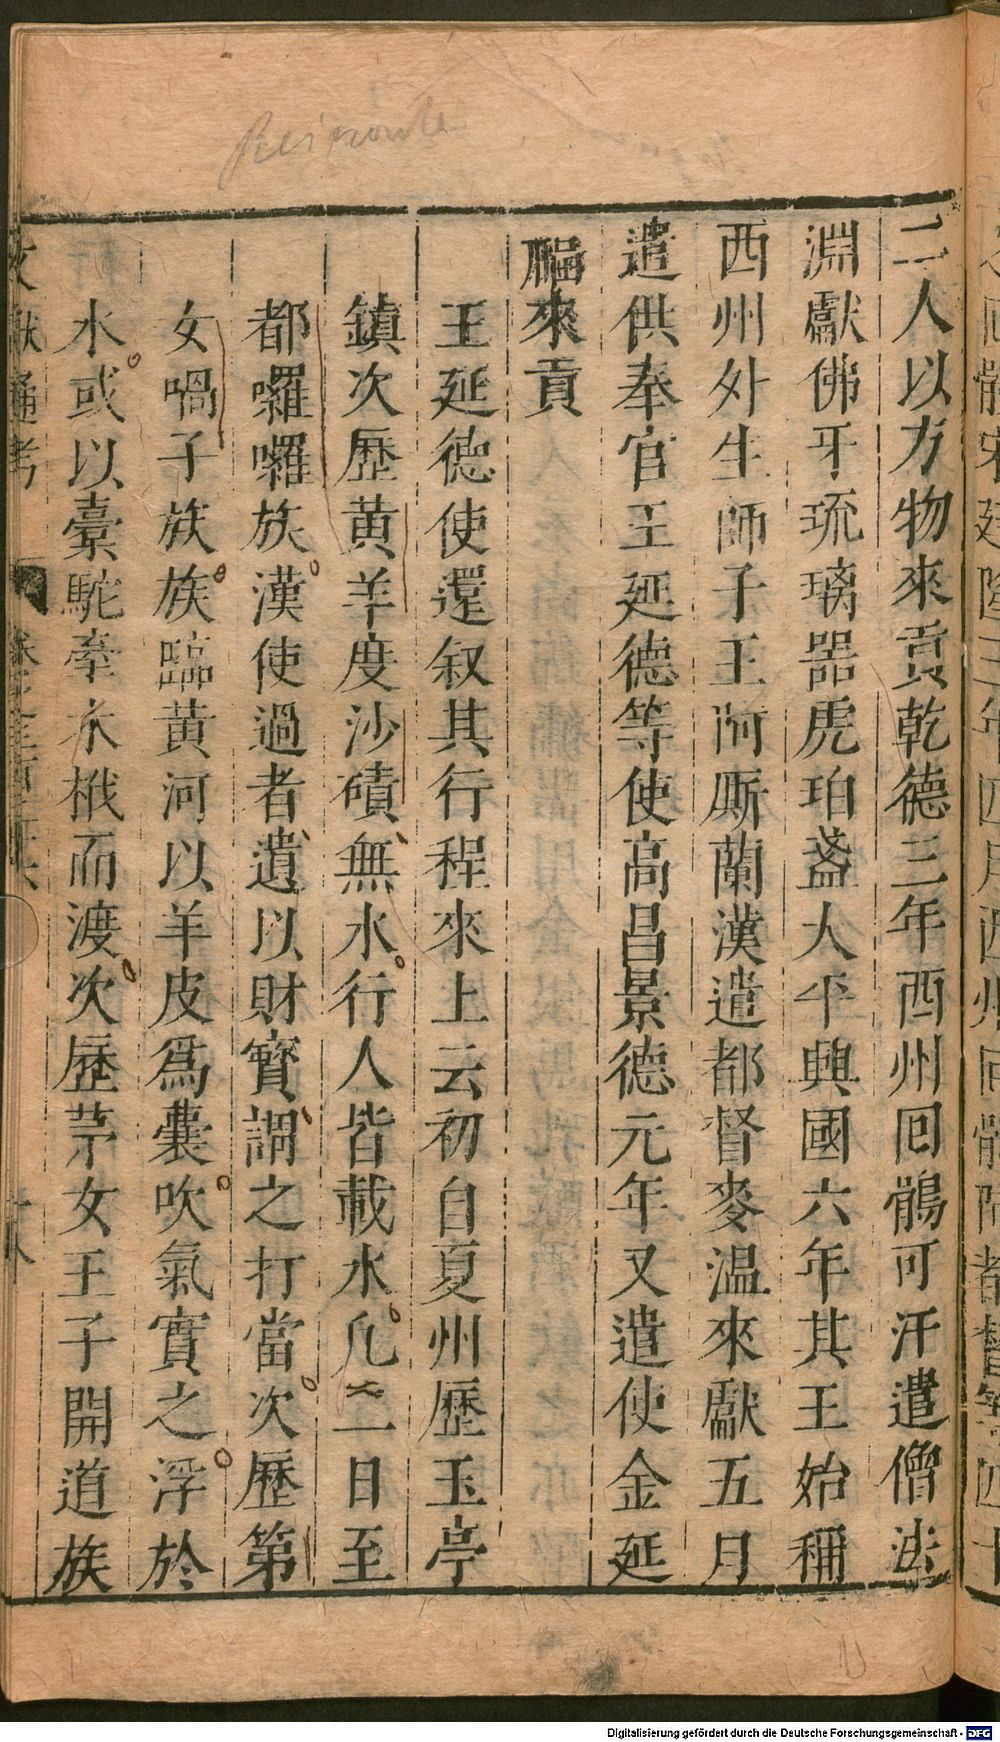 二人以方物來貢乾德三年酉州回鶻可汗遣僧法
淵獻佛牙琉璃器虎珀盞大平興國六年其王始稱
西州外生師子王阿厮蘭漢遣都督麥温來獻五月
遣供奉官王延德等使高昌景德元年又遣使金延
福來貢
王延德使還叙其行程來上云初自夏州歷玉亭
鎮次歷黄羊度沙磧無水行人皆載水凡二日至
都囉囉族漢使過者遺以財寳謂之打當次歷第
女喎子族族臨黄河以羊皮爲囊吹氣實之浮於
水或以橐駝牽木栰而渡次歷茅女王子開道族
文獻通考
Digitalisierung gefördert durch die Deutsche Forschungsgemeinschaft - DFG